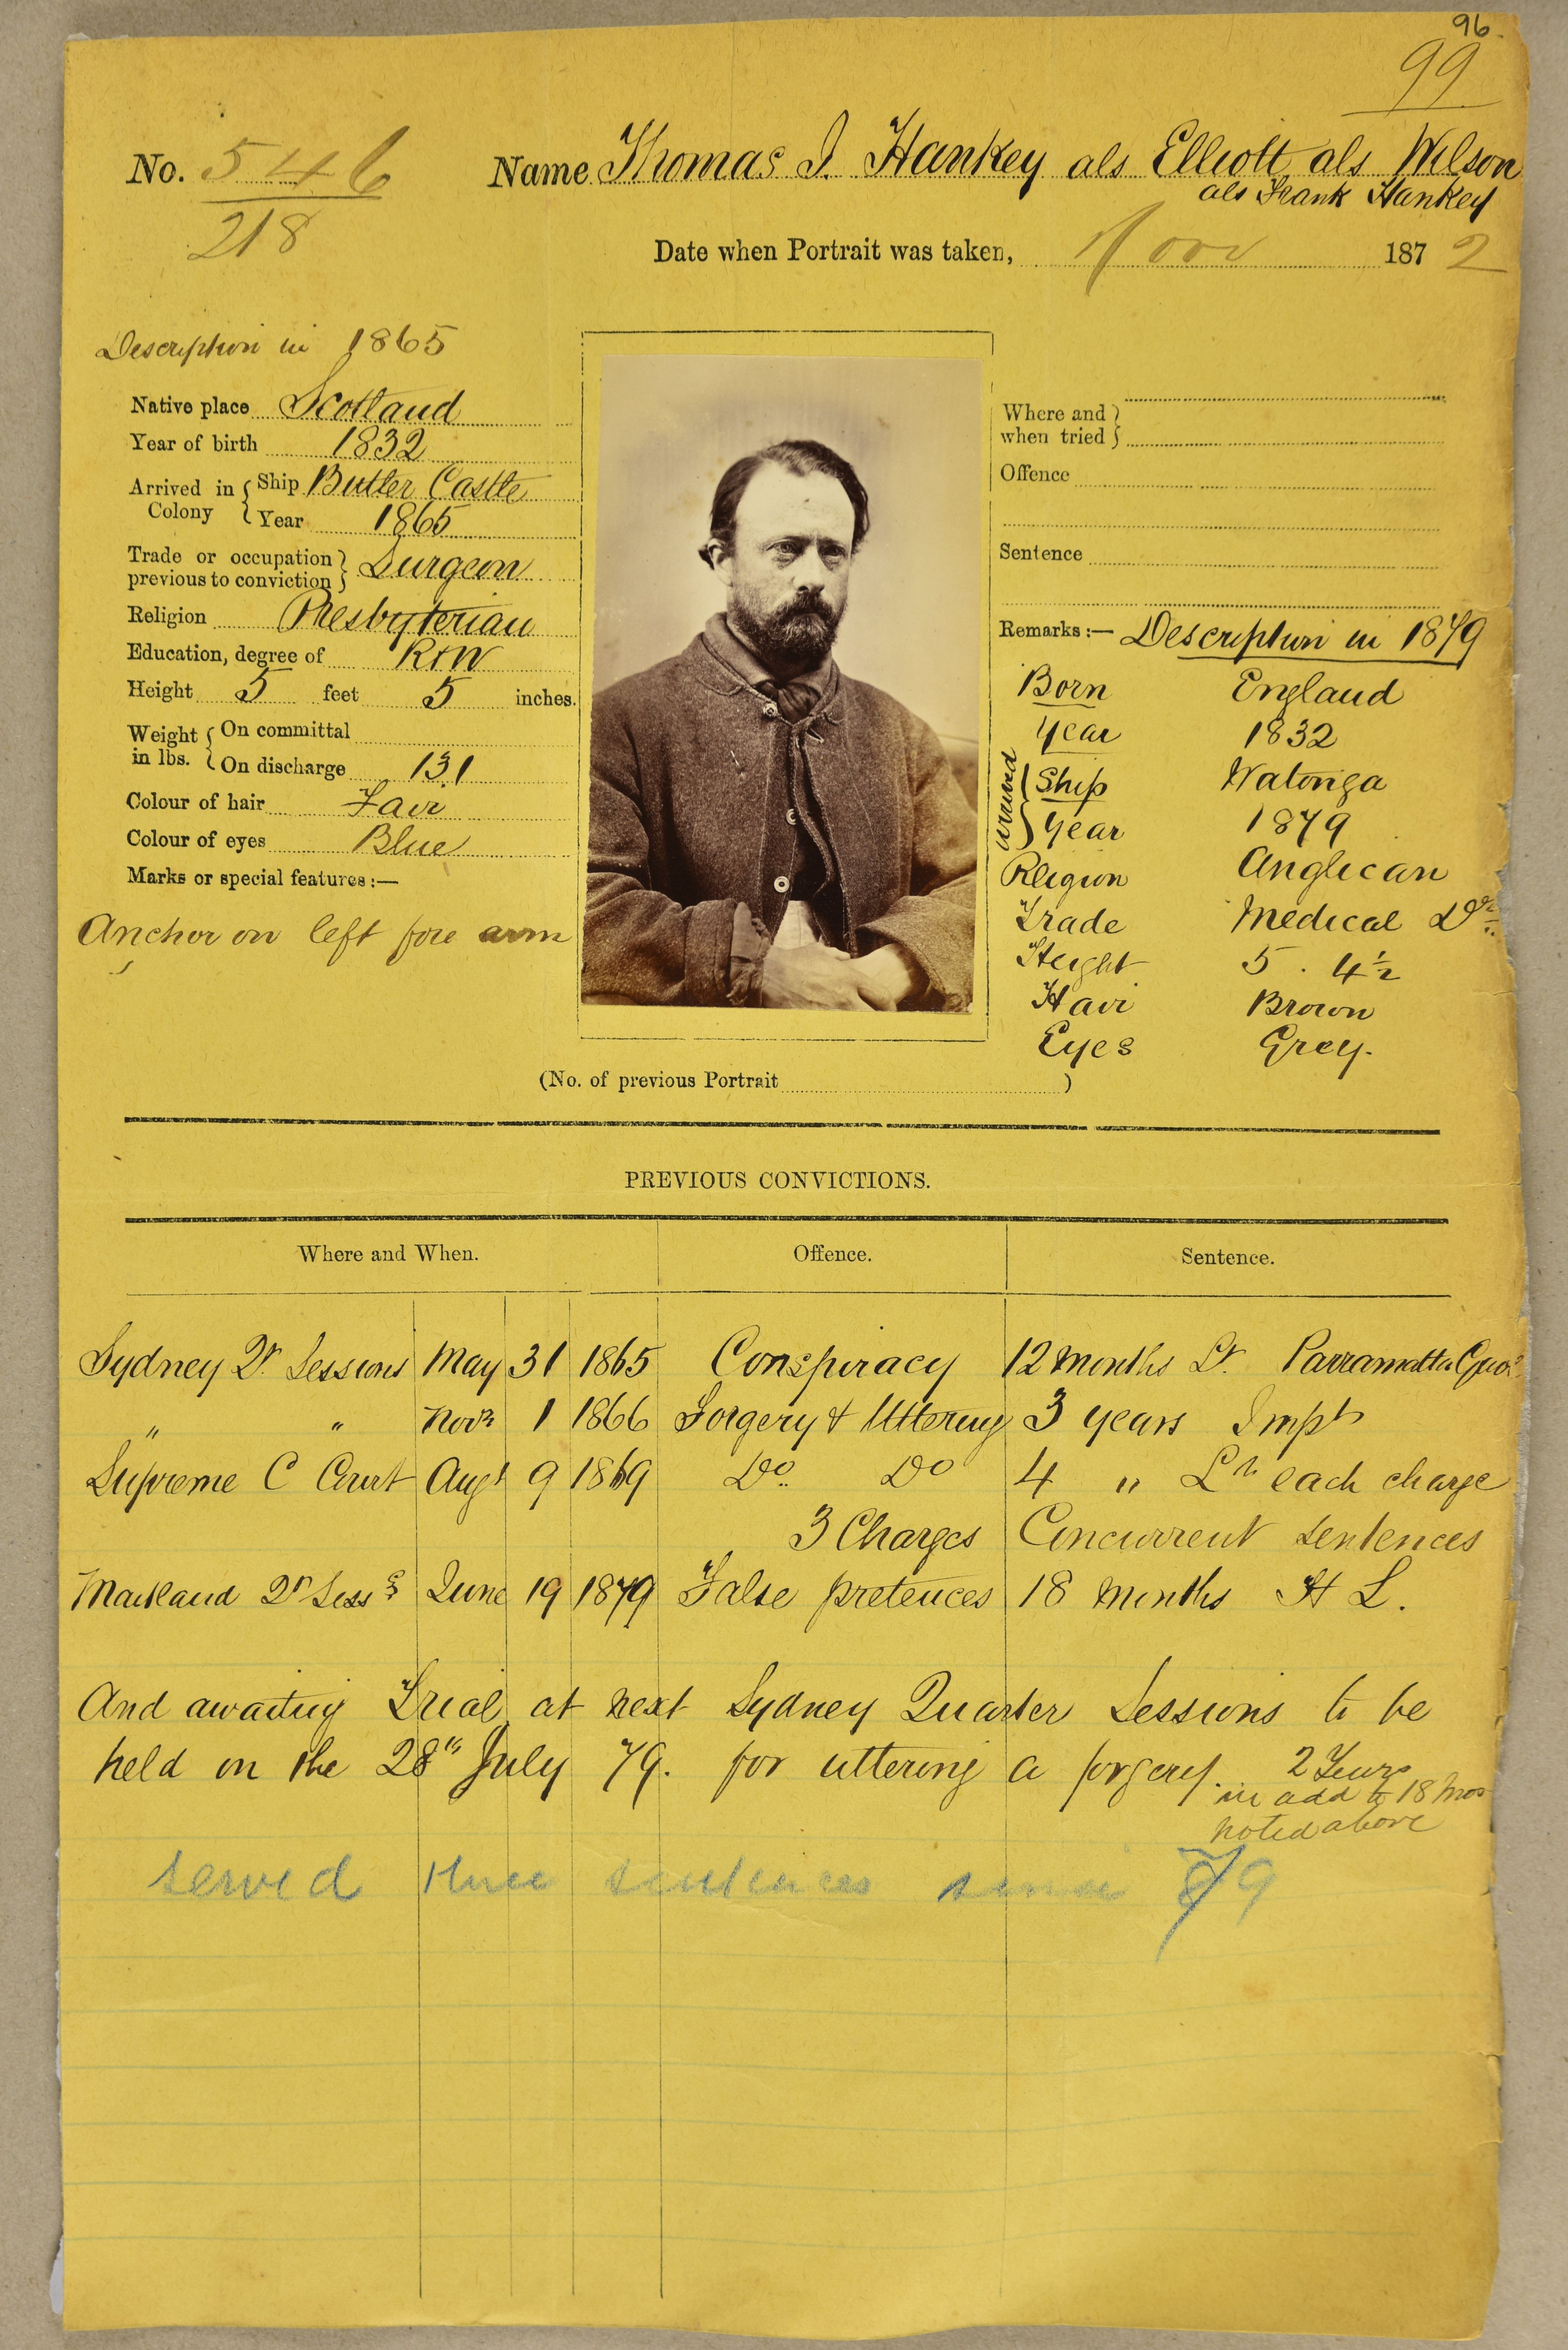 96.
99
No. 546
218
Name Thomas J. Hankey als Elliott als Wilson
als Frank Hankey
Date when Portrait was taken, Novr 1872
Description in 1865
Native place Scotland
Year of birth 1832
Arrived in Colony { Ship Butler Castle
Year 1865
Trade or occupation previous to conviction } Surgeon
Religion Presbyterian
Education, degree of R+W
Height 5 feet 5 inches.
Weight in lbs. { On committal
On discharge 131
Colour of hair Fair
Colour of eyes Blue
Marks or special features:—
Anchor on left fore arm
Where and when tried }
Offence
Sentence
Remarks:— Description in 1879
Born England
Year 1832
arrived { Ship Watonga
Year 1879
Religion Anglican
Trade Medical Dr.
Height 5 . 4½
Hair Brown
Eyes Grey.
(No. of previous Portrait )
PREVIOUS CONVICTIONS.
Where and When. Offence. Sentence.
Sydney Qr. Sessions May 31 1865 Conspiracy 12 Months Parramatta Gaol
" " Novr 1 1866 Forgery & Uttering 3 years Impt
Supreme C Court Augt 9 1869 Do. Do 4 " each charge
3 Charges Concurrent sentences
Maitland Qr Sess June 19 1879 False pretences 18 Months H L.
And awaiting Trial at next Sydney Quarter Sessions to be
held on the 28th July 79. for uttering a forgery. 2 Years
in add to 18 mos
noted above
served three sentences since 79